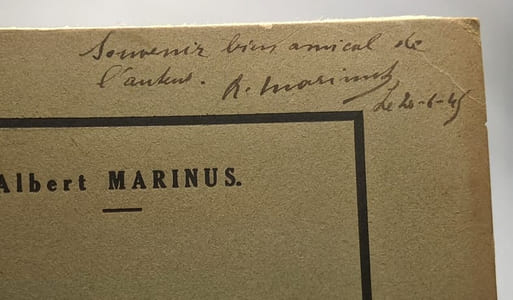 Souvenir bien amical de
l'auteur. A. Marinus
Le 20-6-45
Albert MARINUS.